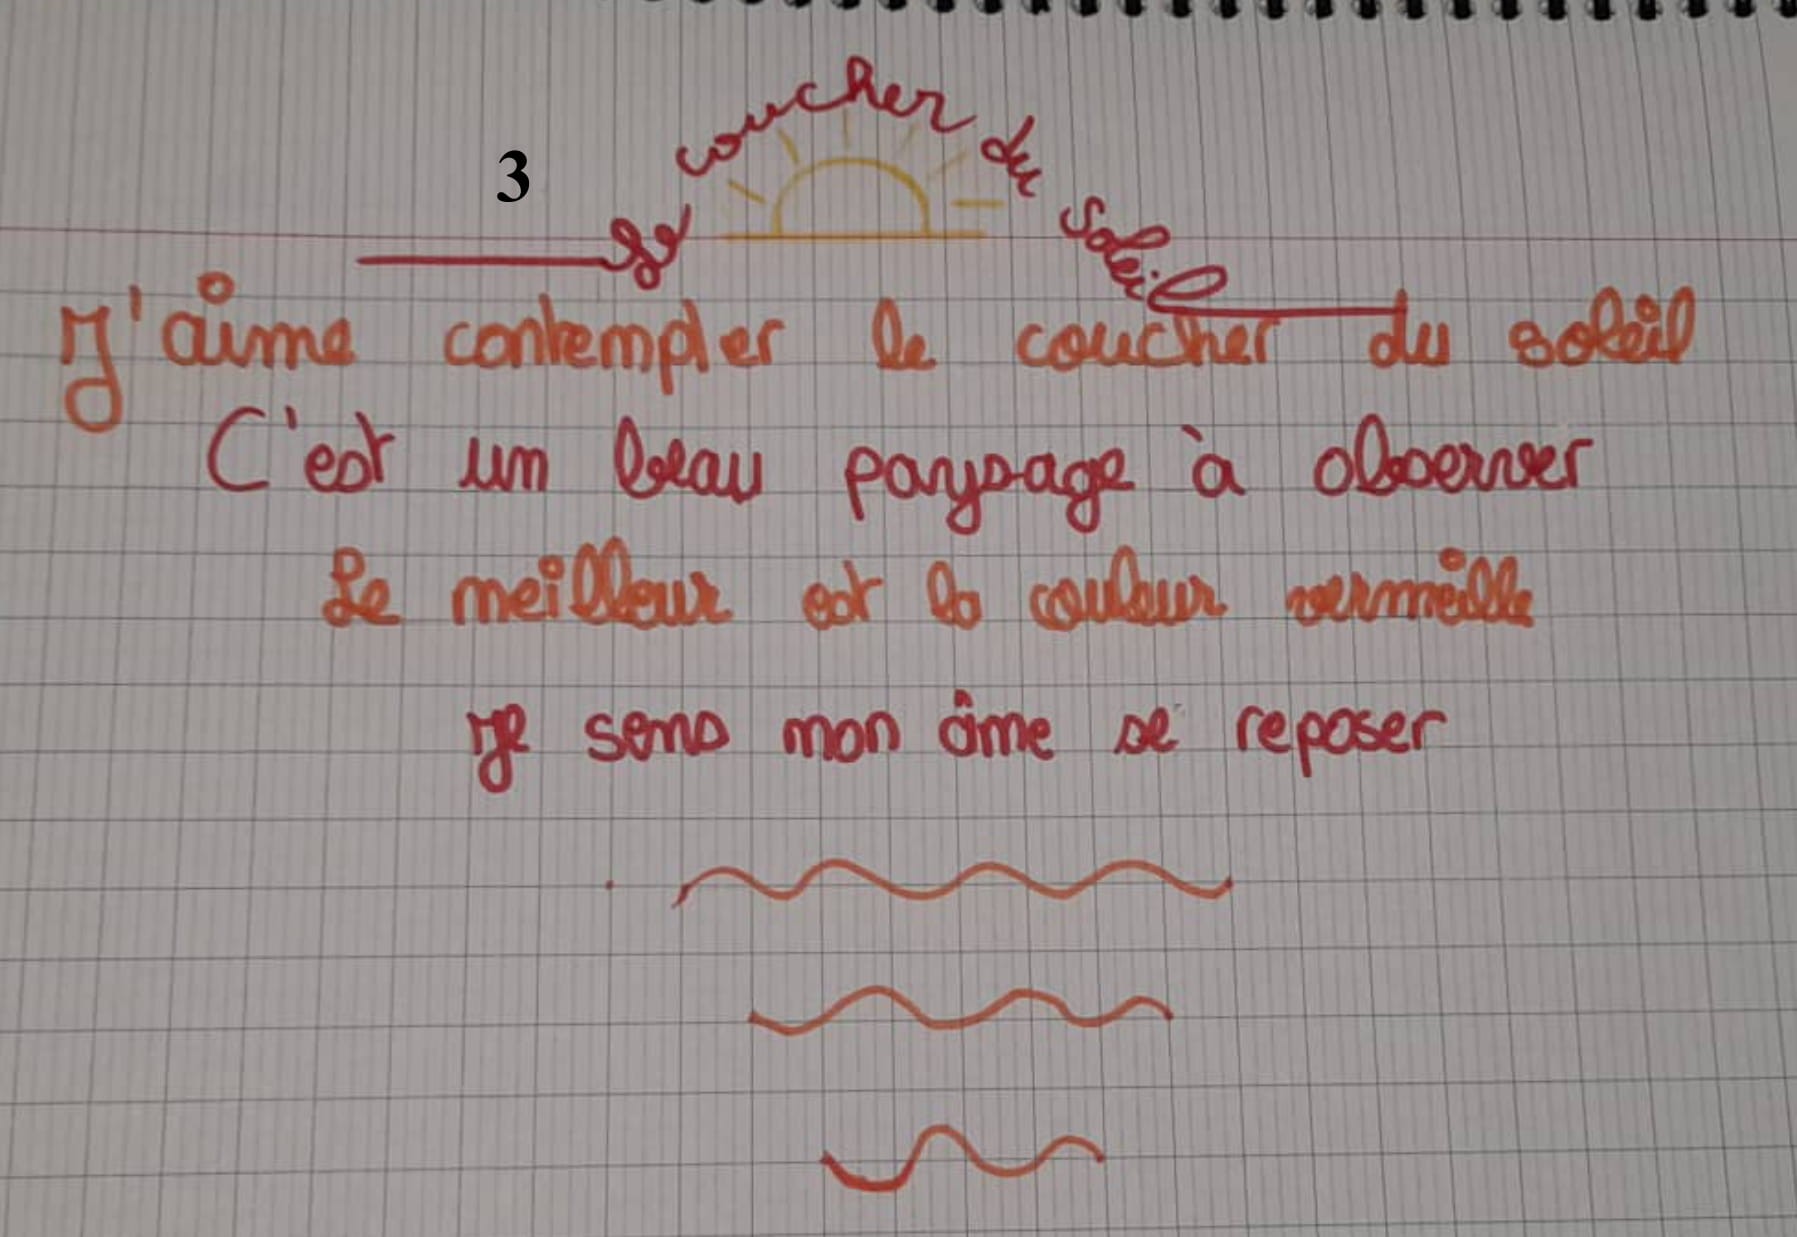 3
Le coucher du soleil
J'aime contempler le coucher du soleil
C'est un beau paysage à observer
Le meilleur est la couleur vermeille
Je sens mon âme se reposer